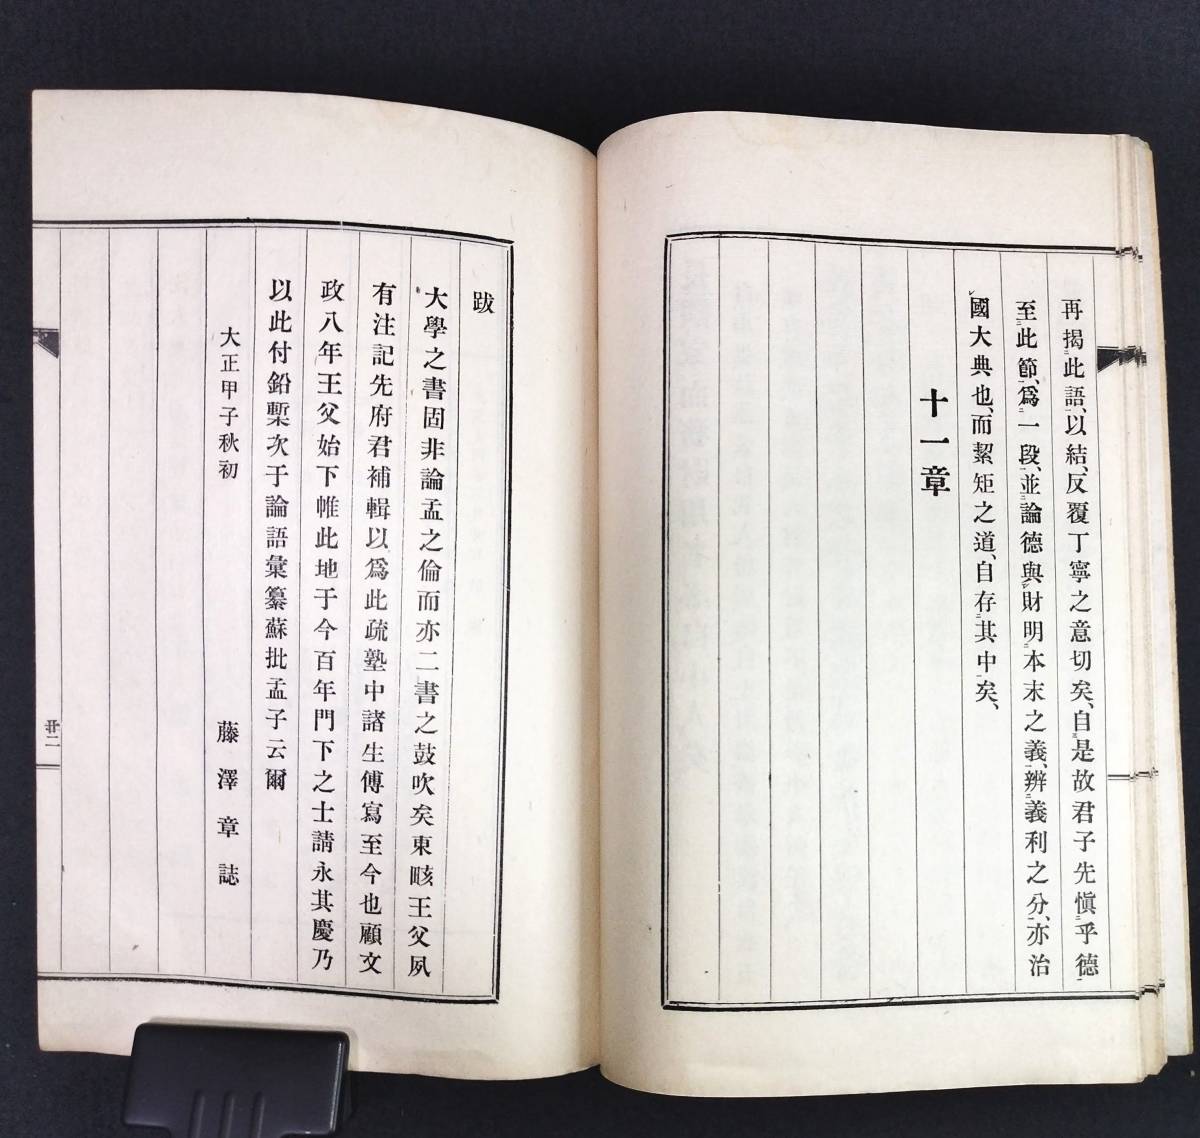 再揭此語、以結、反覆丁寧之意切矣、自是故君子先愼乎德
至此節、爲一段、並論德與財明本末之義、辨義利之分、亦治
國大典也、而絜矩之道、自存其中矣、
十一章
跋
大學之書固非論孟之倫而亦二書之鼓吹矣東畡王父夙
有注記先府君補輯以爲此疏塾中諸生傳寫至今也顧文
政八年王父始下帷此地于今百年門下之士請永其慶乃
以此付鉛槧次于論語彙纂蘇批孟子云爾
大正甲子秋初
藤澤章誌
廿二